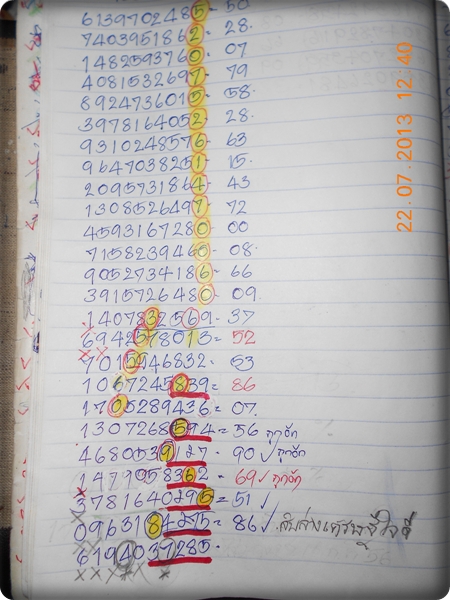 6139702485 = 50
7403951862 - 28.
1482593760 - 07
4081532697 - 79
8924736015 - 58.
3978164052 - 28.
9310248576 - 63
9647038251 - 15.
2095731864 - 43
1308526497 - 72
4593167280 - 00
7158239460 - 08.
9052734186 - 66
3915726480 - 09.
1407832569 - 37
6942578013 = 52
7015446832 - 53
1067245839 = 86
1705289436 = 07.
1307268594 = 56 ถูกอีก
4680539127 - 90 ✓ ถูกอีก
1479058362 - 69 ✓ ถูกอีก
3781640295 = 51 ✓
0963184275 = 86 ✓
6194037285.
22.07.2013 12:40